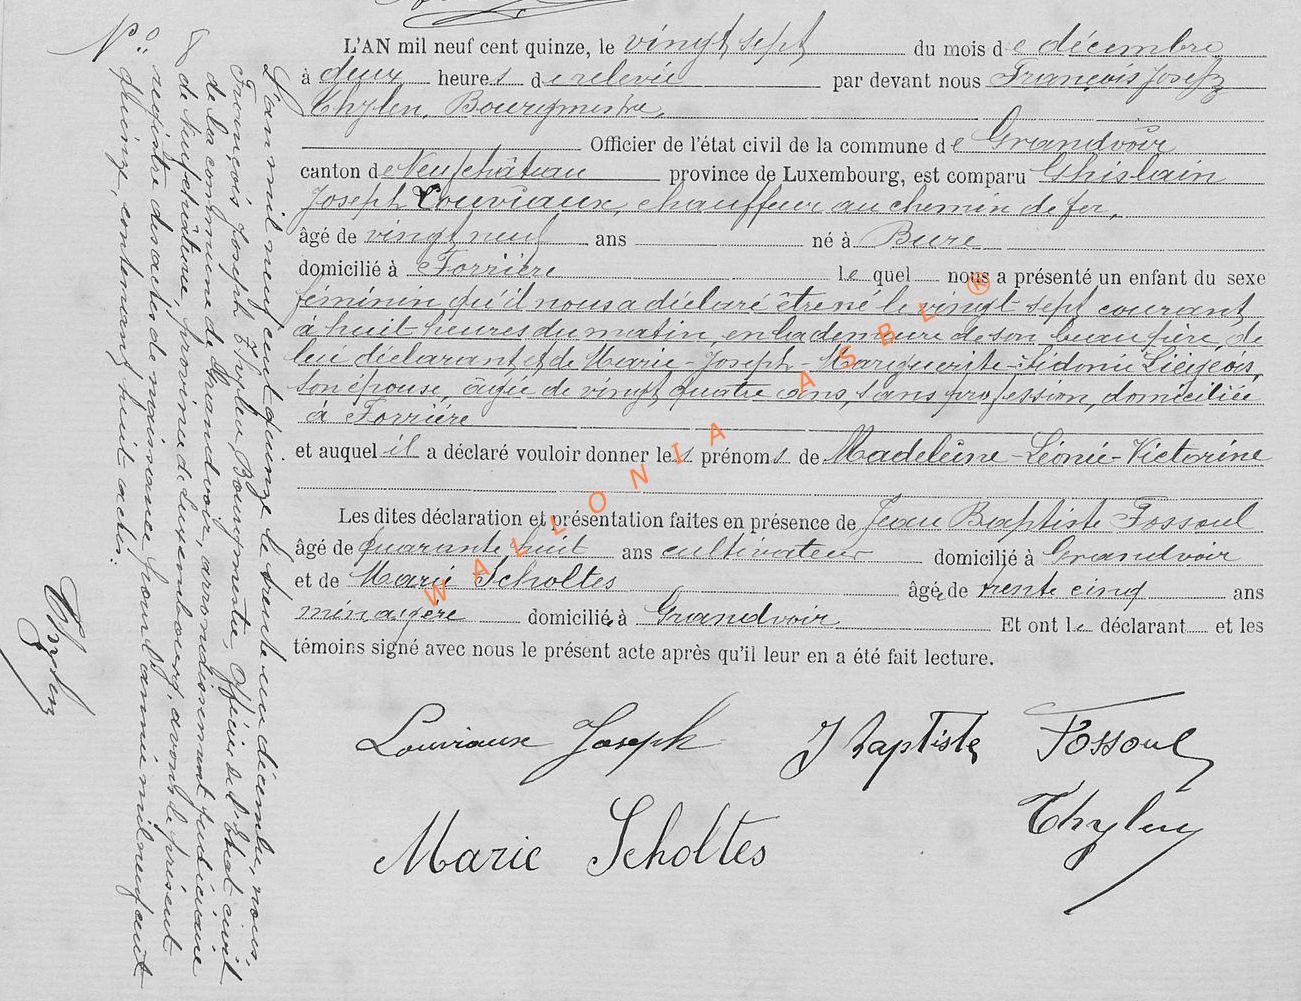 L'AN mil neuf cent quinze, le vingt sept du mois de décembre
à deux heures de relevée par devant nous François Joseph
Thylen, Bourgmestre,
Officier de l'état civil de la commune de Grandvoir
canton de Neufchâteau province de Luxembourg, est comparu Ghislain
Joseph Louviaux, chauffeur au chemin de fer,
âgé de vingt neuf ans né à Bure
domicilié à Forrière lequel nous a présenté un enfant du sexe
féminin qu'il nous a déclaré être né le vingt sept courant
à huit heures du matin, en la demeure de son beau père, de
lui déclarant et de Marie-Joseph-Marguerite-Sidonie Liégeois,
son épouse, agée de vingt quatre ans, sans profession, domiciliée
à Forrière
et auquel il a déclaré vouloir donner les prénoms de Madeleine-Léonie-Victorine
Les dites déclaration et présentation faites en présence de Jean Baptiste Fossoul
âgé de quarante huit ans cultivateur domicilié à Grandvoir
et de Marie Scholtes âgée de trente cinq ans
ménagère domicilié à Grandvoir Et ont le déclarant et les
témoins signé avec nous le présent acte après qu'il leur en a été fait lecture.
Louviaux Joseph J Baptiste Fossoul
Marie Scholtes Thylen
L'an mil neuf cent quinze le trente un décembre, nous,
François Joseph Thylen, Bourgmestre, Officier de l'état civil
de la commune de Grandvoir, arrondissement judiciaire
de Neufchâteau, province de Luxembourg, avons le présent
registre des actes de naissance pour l'année mil neuf cent
quinze, contenant huit actes.
Thylen
WALLONIA ASBL ®